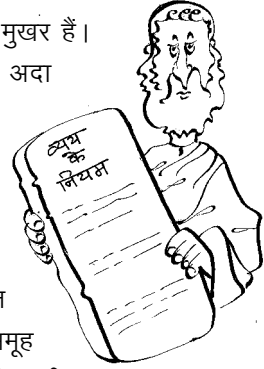 मुखर हैं।
अदा
व्यय
के
नियम
मूह